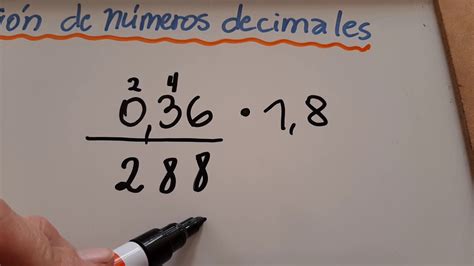 ión de números decimales
2 4
0,36 · 1,8
288